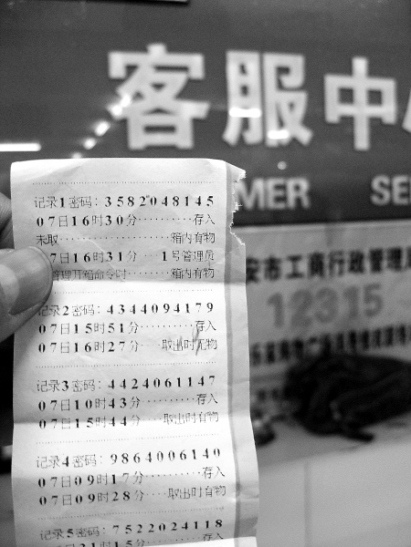 客服中心
MER SE
安市工商行政管理
12315
记录1密码:3582048145
07日16时30分·········存入
未取···················箱内有物
07日16时31分 1号管理员
箱内有物
记录2密码:4344094179
07日15时51分·········存入
07日16时27分··取出时无物
记录3密码:4424061147
07日10时43分·········存入
07日15时44分··取出时有物
记录4密码:9864006140
07日09时17分·········存入
07日09时28分··取出时有物
记录5密码:7522024118